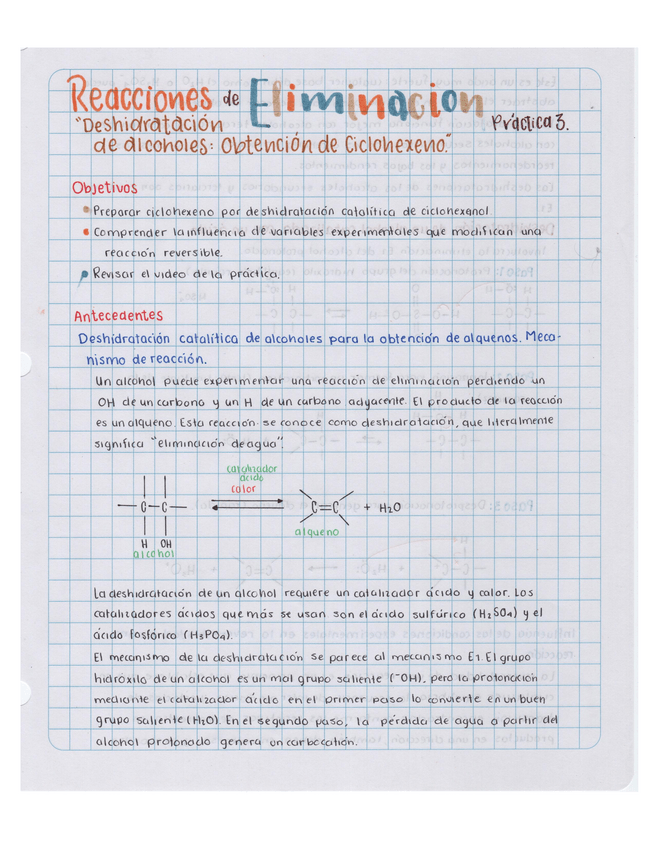 Reacciones de Eliminacion
"Deshidratación Práctica 3.
de alcoholes: Obtención de Ciclohexeno."
Objetivos
Preparar ciclohexeno por deshidratación catalítica de ciclohexanol
Comprender la influencia de variables experimentales que modifican una
reacción reversible.
Revisar el video de la práctica.
Antecedentes
Deshidratación catalítica de alcoholes para la obtención de alquenos. Meca-
nismo de reacción.
Un alcohol puede experimentar una reacción de eliminación perdiendo un
OH de un carbono y un H de un carbono adyacente. El producto de la reacción
es un alqueno. Esta reacción se conoce como deshidratación, que literalmente
significa "eliminación de agua".
catalizador
ácido
calor
C-C
C=C + H2O
H OH
alcohol
alqueno
La deshidratación de un alcohol requiere un catalizador ácido y calor. Los
catalizadores ácidos que más se usan son el ácido sulfúrico (H2SO4) y el
ácido fosfórico (H3PO4).
El mecanismo de la deshidratación se parece al mecanismo E1. El grupo
hidróxilo de un alcohol es un mal grupo saliente (⁻OH), pero la protonación
mediante el catalizador ácido en el primer paso lo convierte en un buen
grupo saliente (H2O). En el segundo paso, la pérdida de agua a partir del
alcohol protonado genera un carbocatión.